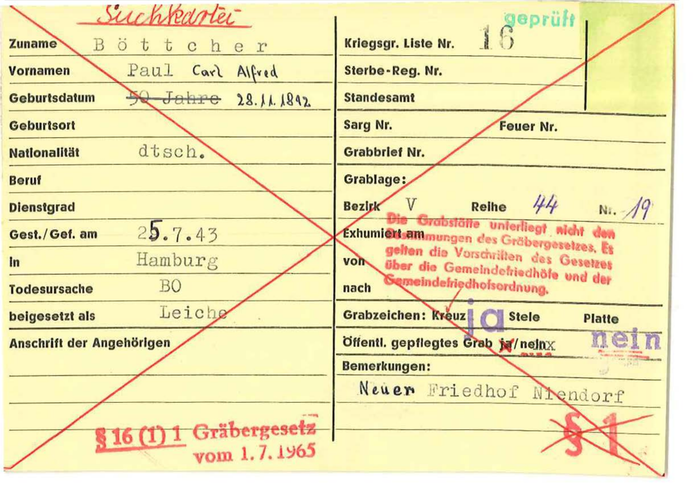 Suchkartei
geprüft
Zuname Böttcher
Vornamen Paul Carl Alfred
Geburtsdatum 50 Jahre 28.11.1892
Geburtsort
Nationalität dtsch.
Beruf
Dienstgrad
Gest./Gef. am 25.7.43
In Hamburg
Todesursache BO
beigesetzt als Leiche
Anschrift der Angehörigen
§ 16 (1) 1 Gräbergesetz
vom 1.7.1965
Kriegsgr. Liste Nr. 16
Sterbe-Reg. Nr.
Standesamt
Sarg Nr. Feuer Nr.
Grabbrief Nr.
Grablage:
Bezirk V Reihe 44 Nr. 19
Exhumiert am
von
nach
Die Grabstätte unterliegt nicht den
Bestimmungen des Gräbergesetzes. Es
gelten die Vorschriften des Gesetzes
über die Gemeindefriedhöfe und der
Gemeindefriedhofsordnung.
Grabzeichen: Kreuz ja Stele Platte
Öffentl. gepflegtes Grab ja/nein nein
Bemerkungen:
Neuer Friedhof Niendorf
§ 1